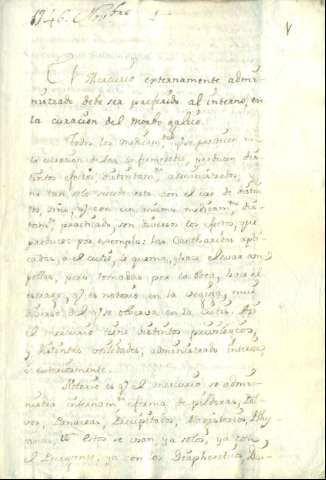 1746. Nov.bre
V
El Mercurio externamente admi-
nistrado debe ser preferido al interno, en
la curacion del Morbo galico.
Todos los medicam.tos que practican en
la curacion de las enfermedades, producen dis-
tintos efectos distintam.te administrados, y
no tan solo sucede esto con el uso de distin-
tos, sino q.e con un mismo medicam.to dis-
tintam.te practicado, son diversos los efectos, que
produce: por exemplo: las Cantharidas apli-
cadas, a el cutis, le quema, y hace llevar am-
pollas, pero tomadas por la boca, hace el
estrago, q.e es notorio en la vegiga, muy
diverso del q.e se observa en la cutis. Assi
el mercurio tiene distintos privilegios,
y distintas utilidades, administrado interna
o externamente.
Notorio es q.e el mercurio se admi-
nistra internam.te en forma de pildoras, Pol-
vos, Panaceas, Precipitados,
estos se usan, ya solos, ya con
el ya con los Diaphoreticos,